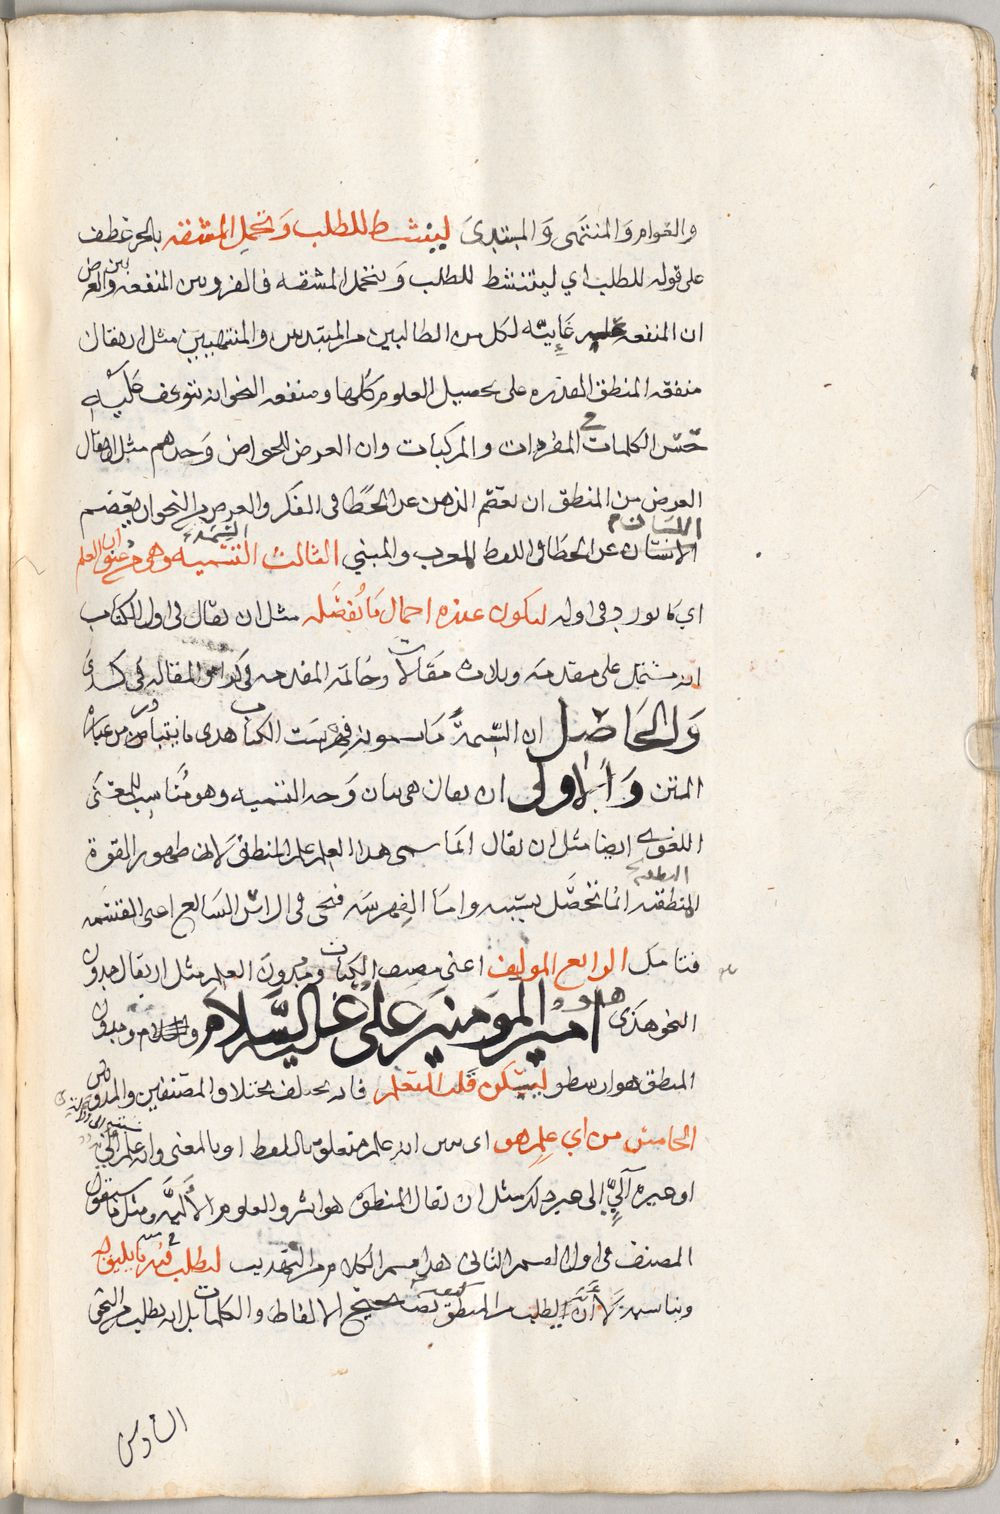 والعوام والمنتهى والمبتدى لينشط للطلب وتحمل المشقه بالجر عطف
على قوله للطلب اي لينشط للطلب وتتحمل المشقه فالفرق بين المنفعه وبين الغرض
ان المنفعه غاية لكل من الطالبين من المبتدين والمنتهيين مثل ان يقال
منفعة المنطق المقدره على تحصيل العلوم كلها ومنفعه النحو انه يتوقف عليه
الكلمات المفردات والمركبات وان العرض للخواص وحدهم مثل ان يقال
الغرض من المنطق ان تعصم الذهن عن الخطا في الفكر والغرض من النحو ان يعصم
اللسان
الانسان عن الخطا في اللفظ المعرب والمبني الثالث التسميه وهي عنوان العلم
السمة
اي ما يورد في اوله ليكون عنده اجمال ما يفصله مثل ان يقال في اول الكتاب
انه مشتمل على مقدمه وثلاث مقالات وخاتمه المقدمه في كذا والمقاله في كذا
والحاصل ان السمة ما يسمونه فهرست الكتاب هذا ما يتبادر من عبارة
المتن والاولى ان يقال هي بيان وجه التسميه وهو مناسب للمعنى
اللغوي ايضا مثل ان يقال انما سمى هذا العلم علم المنطق لان ظهور القوة
النطقيه انما تحصل بسببه واما الفهرسه فتجى في الراس السابع اعنى القسمه
فتامل الرابع المولف اعنى مصنف الكتاب ومدون العلم مثل ان يقال مدون
النحو هذا هو امير المومنين على عليه السلام ومدون
المنطق هو ارسطو ليسكن قلب المتعلم فانه يختلف باختلاف المصنفين والمدونين
الخامس من اي علم هو اى بيان انه علم متعلق باللفظ او بالمعنى وانه علم آلي
او غيره آلي الى غير ذلك مثل ان يقال المنطق هو اشرف العلوم الآليه ومثل ما سيقول
المصنف في اول القسم الثانى هذا قسم الكلام من التهذيب ليطلب فيه ما يليق به
ويناسبه لا أن يطلب من المنطق تصحيح الالفاظ والكلمات بل انه يطلب من النحو
السادس